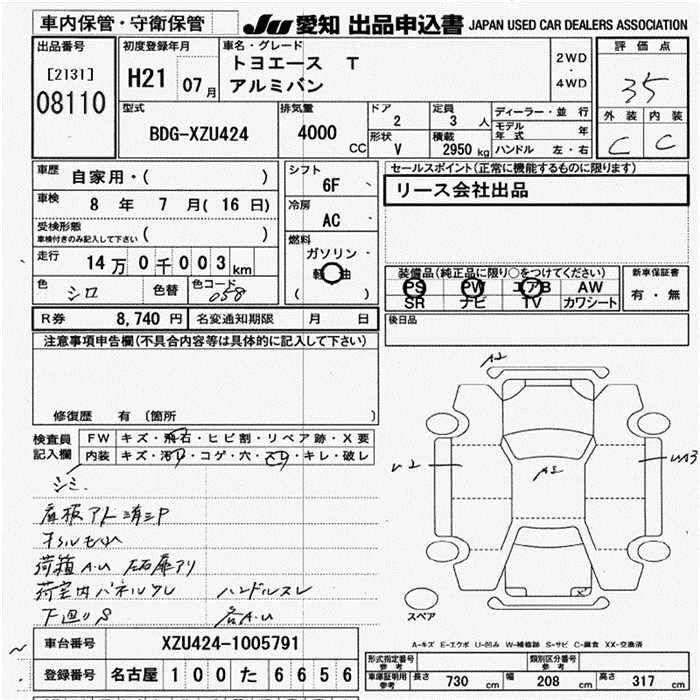 車内保管・守衛保管
JU 愛知 出品申込書 JAPAN USED CAR DEALERS ASSOCIATION
出品番号
[2131]
08110
初度登録年月
H21 07月
車名・グレード
トヨエース T
アルミバン
2WD
・
4WD
評価点
35
外装 内装
C C
型式
BDG-XZU424
排気量
4000
CC
ドア
2
定員
3 人
形状
V
積載
2950 kg
ディーラー・並行
モデル年式 年
ハンドル 左・右
車歴
自家用・( )
車検
8 年 7 月( 16 日)
受検形態
車検付きのみ記入して下さい ( )
走行
14万0千003km
色
シロ
色替
色コード
058
シフト
6F
冷房
AC
燃料
ガソリン
軽油
( )
セールスポイント(正常に機能するものに限ります)
リース会社出品
装備品(純正品に限り○をつけてください)
PS PW エアB AW
SR ナビ TV カワシート
新車保証書
有・無
R券 8,740 円 名変通知期限 月 日
後日品
注意事項申告欄(不具合内容等は具体的に記入して下さい)
修復歴 有 〔箇所 〕
検査員
記入欄
FW キズ・飛石・ヒビ割・リペア跡・X要
内装 キズ・汚レ・コゲ・穴・スレ・キレ・破レ
シミ
看板アト
荷箱A.U
荷室内パネルワレ ハンドルスレ
下廻りS
A2
U2
A2
スペア
A-キズ E-エクボ U-凹み W-補修跡 S-サビ C-腐食 XX-交換済
車台番号 XZU424-1005791
登録番号 名古屋 100 た 6656
形式指定番号
参考
類別区分番号
参考
車庫証明用
参考
長さ 730 cm 幅 208 cm 高さ 317 cm